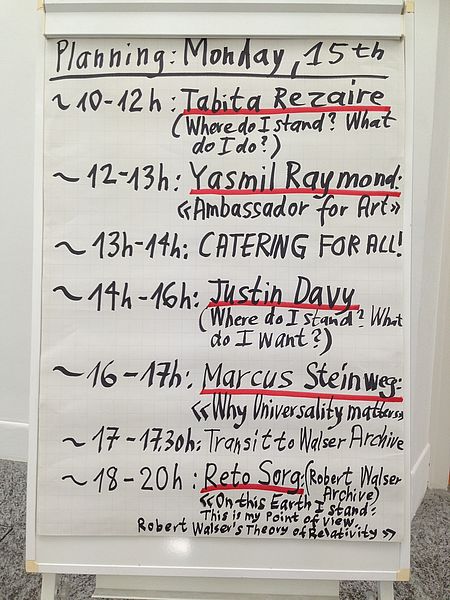 Planning: Monday, 15th
~10-12h: Tabita Rezaire
(Where do I stand? What
do I do?)
~12-13h: Yasmil Raymond:
«Ambassador for Art»
~13h-14h: CATERING FOR ALL!
~14h-16h: Justin Davy
(Where do I stand? What
do I want?)
~16-17h: Marcus Steinweg:
«Why Universality matters»
~17-17.30h: Transit to Walser Archive
~18-20h: Reto Sorg: (Robert Walser
Archive)
«On this Earth I stand:
This is my Point of View.
Robert Walser's Theory of Relativity»